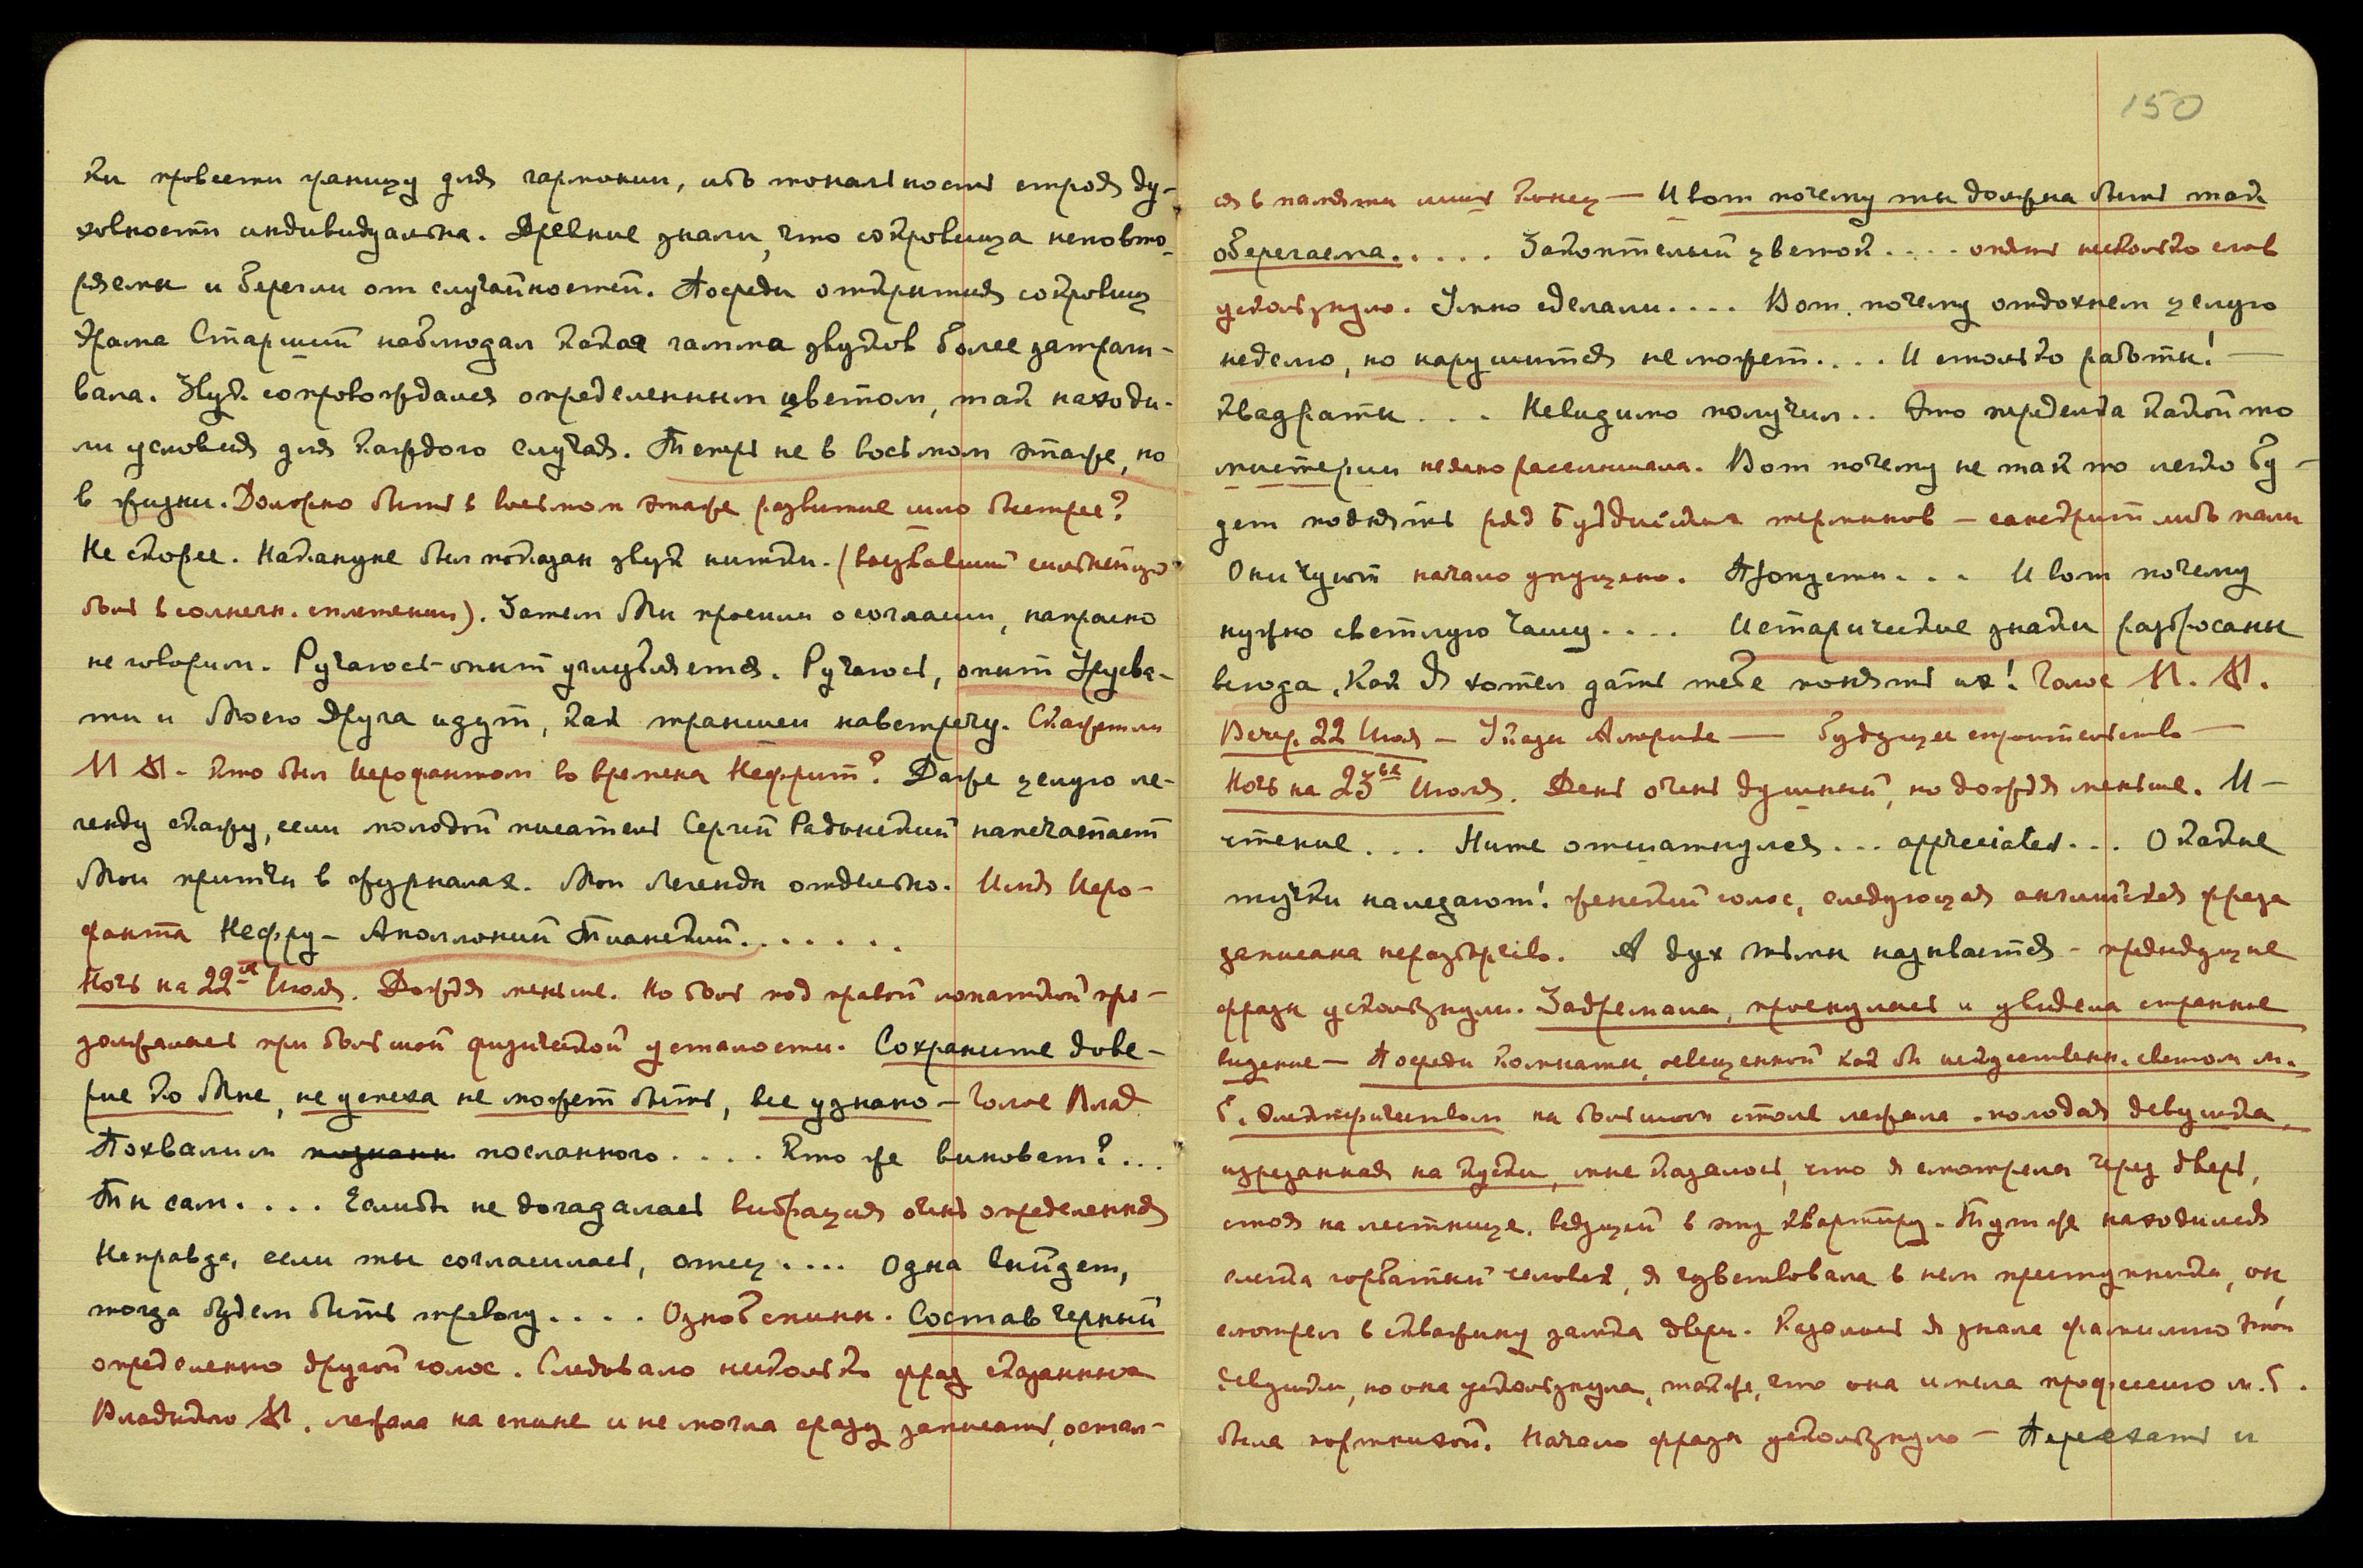 ки провести границу для гармонии, ибо тональность строя ду-
ховности индивидуальна. Древние знали, что сокровища неповто-
ряемы и берегли от случайностей. Посреди открытия сокровищ
Храма Старший наблюдал какая гамма звуков более затраги-
вала. Звук сопровождался определенным цветом, так находи-
ли условия для каждого случая. Теперь не в восьмом этаже, но
в жизни. Должно быть в восьмом этаже развитие шло быстрее?
Не скорее. Накануне был показан звук нитки. (вызвавший сильнейшую
боль в солнечн. сплетении). Затем Мы просили о согласии, напрасно
не говорим. Ручаюсь - опыт углубляется. Ручаюсь, опыт Урусва-
ти и Моего Друга идут, как траншеи навстречу. Скажет ли
М. М. - Кто был Иерофантом во времена Нефрит? Даже целую ле-
генду скажу, если молодой писатель Сергий Радонежский напечатает
Мои притчи в журналах. Мои Легенды отдельно. Имя Иеро-
фанта Нефру - Аполлоний Тианский. . . . . . .
Ночь на 22ое Июля. Дождя меньше. Но боль под правой лопаткой про-
должалась при большой физической усталости. Сохраните дове-
рие ко Мне, не успеха не может быть, все узнано - Голос Влад.
Похвалим посланного. . . . Кто же виноват? ...
Ты сам. . . . Если бы не догадалась вибрация очень определенная
Неправда, если ты согласилась, отец. . . . Одна выйдет,
тогда будем бить тревогу. . . . Озноб спины. Состав черный
определенно другой голос. Следовало несколько фраз сказанных
Владыкою М. лежала на спине и не могла сразу записать, остал-
150
ся в памяти лишь конец — И вот почему ты должна быть так
оберегаема. . . . . Закоптелый цветок. . . . опять несколько слов
ускользнуло. Умно сделали. . . . Вот почему отдохнем целую
неделю, но нарушиться не может. . . . И столько работы! —
Квадраты . . . Невидимо получил. . Это переделка какой то
мистерии неясно расслышала. Вот почему не так то легко бу-
дет поднять ряд буддийских терминов — санскрит либо пали
Они чуют начало упущено. Пронзены. . . И вот почему
нужно светлую Чашу. . . . Исторические знаки разбросаны
всюда. Как Я хотел дать тебе понять их! Голос М. М.
Вечер. 22 Июля — Указы Америке — будущее строительство —
Ночь на 23ье Июля. День очень душный, но дождя меньше. И -
чтение . . . Ните отшатнулся ... appreciated . . . О какие
тучки наседают! женский голос, следующая английская фраза
записана неразборчиво. А дух тьмы называется - предыдущие
фразы ускользнули. Задремала, проснулась и увидела странное
видение — Посреди комнаты, освещенной как бы искусственн. светом м.
б. электричеством на большом столе лежала молодая девушка,
изрезанная на куски, мне казалось, что я смотрела через дверь,
стоя на лестнице, ведущей в эту квартиру. Тут же находился
слегка горбатый человек, я чувствовала в нем преступника, он
смотрел в скважину замка двери. Казалось я знала фамилию этой
девушки, но она ускользнула, также, что она имела профессию м. б.
была портнихой. Начало фразы ускользнуло — Переехать и